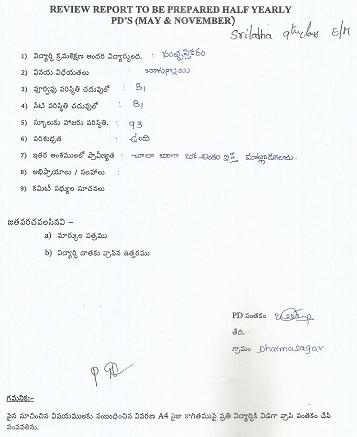 REVIEW REPORT TO BE PREPARED HALF YEARLY
PD'S (MAY & NOVEMBER)
9th class E/M
1) విద్యార్థి క్రమశిక్షణ అందరి విద్యార్థులది. :
2) వినయ విధేయతలు :
3) పూర్వపు పరిస్థితి చదువులో : B1
4) నేటి పరిస్థితి చదువులో : B1
5) స్కూలుకు హాజరు పరిస్థితి. : 93
6) పరిశుభ్రత : ఉంది
7) ఇతర అంశములలో ప్రావీణ్యత : చాలా బాగా
8) అభిప్రాయాలు / సలహాలు :
9) కమిటీ సభ్యుల సూచనలు
జతపరచవలసినవి -
a) మార్కుల పత్రము
b) విద్యార్థి దాతకు వ్రాసిన ఉత్తరము
PD సంతకం
తేది.
గ్రామం Dharmasagar
గమనిక:-
పైన సూచించిన విషయములకు సంబంధించిన వివరణ A4 సైజు కాగితముపై ప్రతి విద్యార్థికి విడిగా వ్రాసి సంతకం చేసి
పంపవలెను.